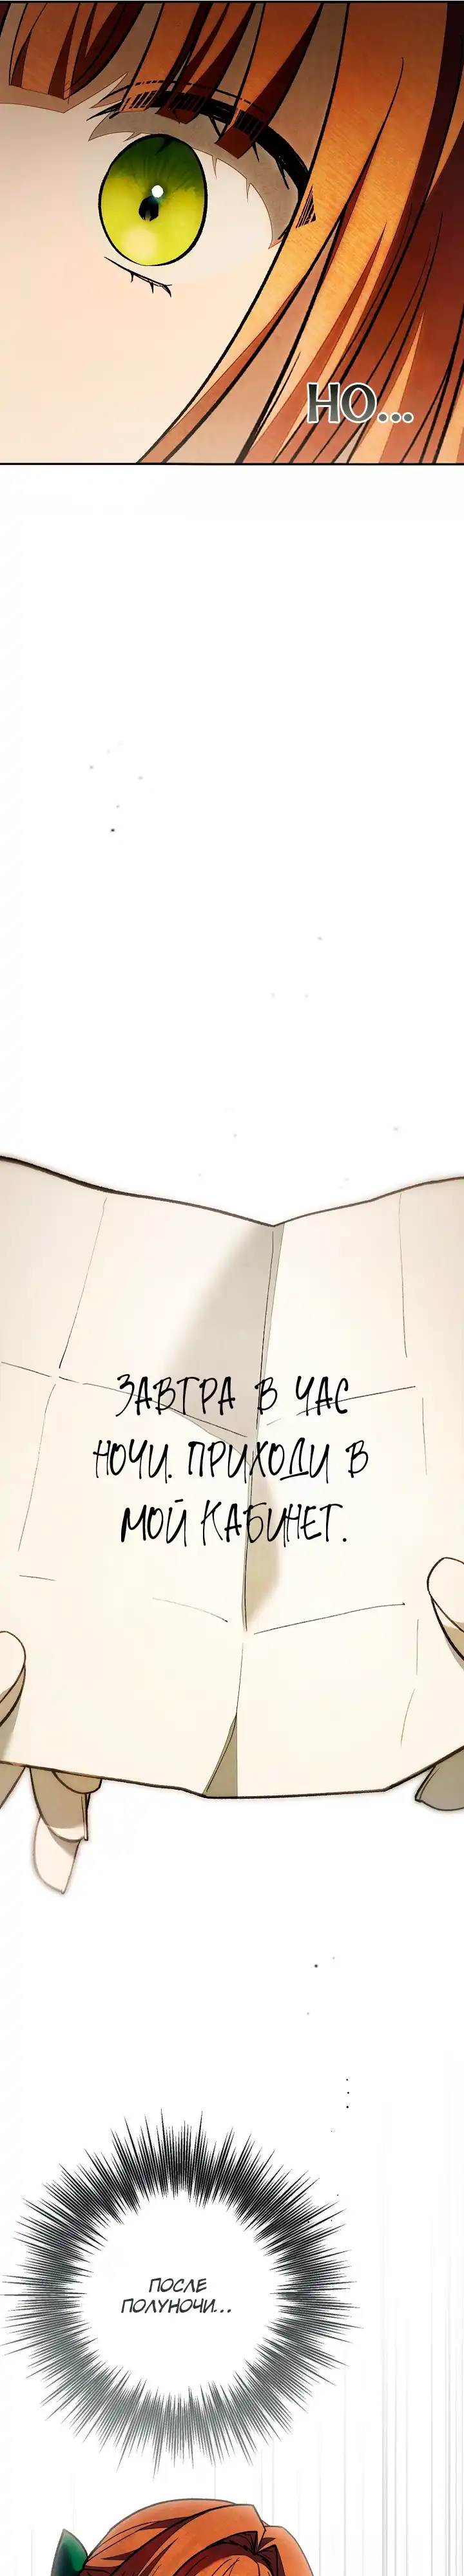 НО...
ЗАВТРА В ЧАС
НОЧИ. ПРИХОДИ В
МОЙ КАБИНЕТ.
ПОСЛЕ
ПОЛУНОЧИ...